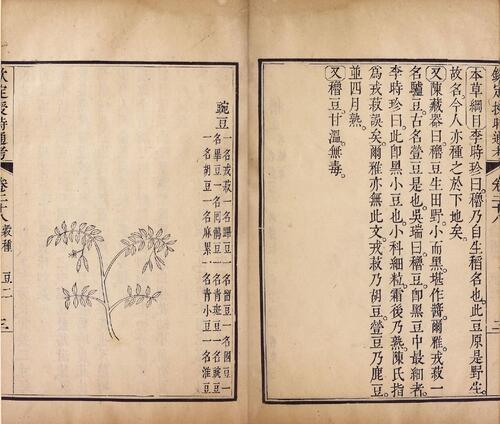 欽定授時通考
卷二十八
本草綱目李時珍曰穭乃自生稻名也此豆原是野生
故名今人亦種之於下地矣
又陳藏器曰穭豆生田野小而黑堪作醬爾雅戎菽一
名驢豆古名䝁豆是也吳瑞曰穭豆卽黑豆中最細者
李時珍曰此卽黑小豆也小科細粒霜後乃熟陳氏指
為戎菽誤矣爾雅亦無此文戎菽乃胡豆䝁豆乃鹿豆
並四月熟
又穭豆甘溫無毒
豌豆
一名戎菽一名蹕豆一名豍豆一名國豆一
名畢豆一名回鶻豆一名青斑豆一名豌豆
一名胡豆一名麻累一名青小豆一名淮豆
欽定授時通考
卷二十八
穀種
豆二
三